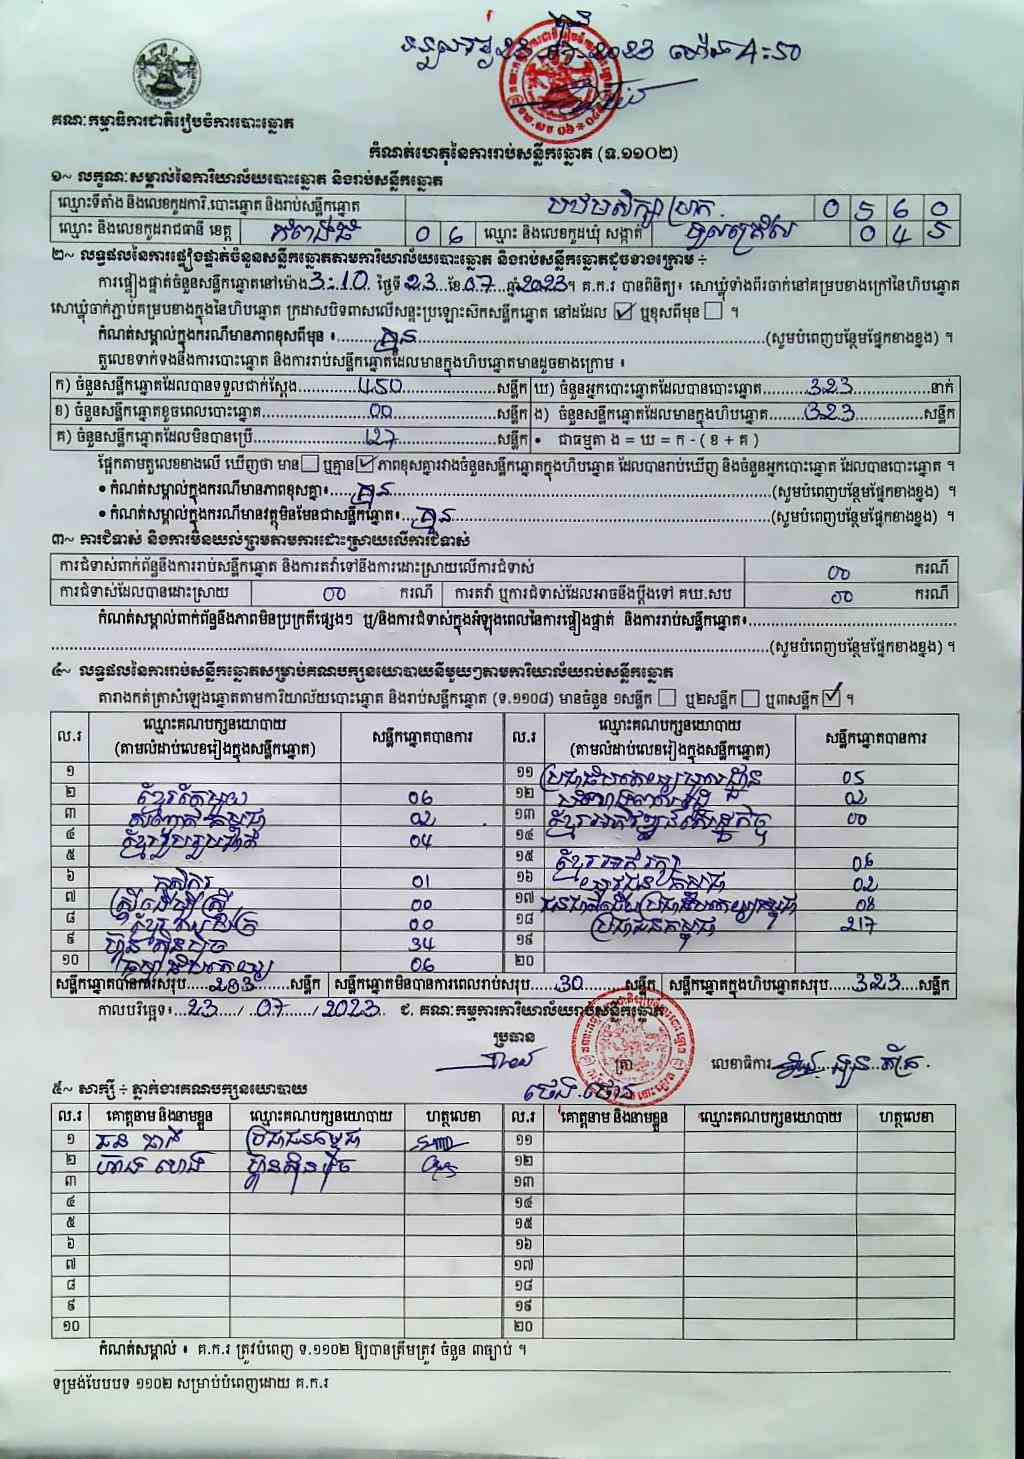 គណៈកម្មាធិការជាតិរៀបចំការបោះឆ្នោត
កំណត់ហេតុនៃការរាប់សន្លឹកឆ្នោត (ទ.១១០២)
១~ លក្ខណៈសម្គាល់នៃការិយាល័យបោះឆ្នោត និងរាប់សន្លឹកឆ្នោត
ឈ្មោះទីតាំង និងលេខកូដការិ.បោះឆ្នោត និងរាប់សន្លឹកឆ្នោត 0 5 6 0
ឈ្មោះ និងលេខកូដរាជធានី ខេត្ត កំពង់ធំ 0 6 ឈ្មោះ និងលេខកូដឃុំ សង្កាត់ ទួលគ្រើល 0 4 5
២~ លទ្ធផលនៃការផ្ទៀងផ្ទាត់ចំនួនសន្លឹកឆ្នោតតាមការិយាល័យបោះឆ្នោត និងរាប់សន្លឹកឆ្នោតដូចខាងក្រោម ÷
ការផ្ទៀងផ្ទាត់ចំនួនសន្លឹកឆ្នោតនៅម៉ោង 3:10 ថ្ងៃទី 23 ខែ 07 ឆ្នាំ 2023 ។ គ.ក.រ បានពិនិត្យ៖ សោឃ្លុំទាំងពីរចាក់នៅគម្របខាងក្រៅនៃហិបឆ្នោត
សោឃ្លុំចាក់ភ្ជាប់គម្របខាងក្នុងនៃហិបឆ្នោត ក្រដាសបិទពាសលើសន្ទះប្រឡោះស៊កសន្លឹកឆ្នោត នៅដដែល ☑ ឬខុសពីមុន ☐ ។
កំណត់សម្គាល់ក្នុងករណីមានភាពខុសពីមុន ៖ គ្មាន (សូមបំពេញបន្ថែមផ្នែកខាងខ្នង) ។
តួលេខទាក់ទងនឹងការបោះឆ្នោត និងការរាប់សន្លឹកឆ្នោតដែលមានក្នុងហិបឆ្នោតមានដូចខាងក្រោម ៖
ក) ចំនួនសន្លឹកឆ្នោតដែលបានទទួលជាក់ស្តែង 450 សន្លឹក ឃ) ចំនួនអ្នកបោះឆ្នោតដែលបានបោះឆ្នោត 323 នាក់
ខ) ចំនួនសន្លឹកឆ្នោតខូចពេលបោះឆ្នោត 00 សន្លឹក ង) ចំនួនសន្លឹកឆ្នោតដែលមានក្នុងហិបឆ្នោត 323 សន្លឹក
គ) ចំនួនសន្លឹកឆ្នោតដែលមិនបានប្រើ 127 សន្លឹក • ជាធម្មតា ង = ឃ = ក - ( ខ + គ )
ផ្អែកតាមតួលេខខាងលើ ឃើញថា មាន ☐ ឬគ្មាន ☑ ភាពខុសគ្នារវាងចំនួនសន្លឹកឆ្នោតក្នុងហិបឆ្នោត ដែលបានរាប់ឃើញ និងចំនួនអ្នកបោះឆ្នោត ដែលបានបោះឆ្នោត ។
• កំណត់សម្គាល់ក្នុងករណីមានភាពខុសគ្នា៖ គ្មាន (សូមបំពេញបន្ថែមផ្នែកខាងខ្នង) ។
• កំណត់សម្គាល់ក្នុងករណីមានវត្ថុមិនមែនជាសន្លឹកឆ្នោត៖ គ្មាន (សូមបំពេញបន្ថែមផ្នែកខាងខ្នង) ។
៣~ ការជំទាស់ និងការមិនយល់ព្រមតាមការដោះស្រាយលើការជំទាស់
ការជំទាស់ពាក់ព័ន្ធនឹងការរាប់សន្លឹកឆ្នោត និងការតវ៉ាទៅនឹងការដោះស្រាយលើការជំទាស់ 00 ករណី
ការជំទាស់ដែលបានដោះស្រាយ 00 ករណី ការតវ៉ា ឬការជំទាស់ដែលអាចនឹងប្តឹងទៅ គឃ.សប 00 ករណី
កំណត់សម្គាល់ពាក់ព័ន្ធនឹងភាពមិនប្រក្រតីផ្សេងៗ ឬ/និងការជំទាស់ក្នុងអំឡុងពេលនៃការផ្ទៀងផ្ទាត់ និងការរាប់សន្លឹកឆ្នោត៖
(សូមបំពេញបន្ថែមផ្នែកខាងខ្នង) ។
៤~ លទ្ធផលនៃការរាប់សន្លឹកឆ្នោតសម្រាប់គណបក្សនយោបាយនីមួយៗតាមការិយាល័យរាប់សន្លឹកឆ្នោត
តារាងកត់ត្រាសំឡេងឆ្នោតតាមការិយាល័យបោះឆ្នោត និងរាប់សន្លឹកឆ្នោត (ទ.១១០៨) មានចំនួន ១សន្លឹក ☐ ឬ២សន្លឹក ☐ ឬ៣សន្លឹក ☑ ។
ល.រ ឈ្មោះគណបក្សនយោបាយ (តាមលំដាប់លេខរៀងក្នុងសន្លឹកឆ្នោត) សន្លឹកឆ្នោតបានការ ល.រ ឈ្មោះគណបក្សនយោបាយ (តាមលំដាប់លេខរៀងក្នុងសន្លឹកឆ្នោត) សន្លឹកឆ្នោតបានការ
១ ១១ ប្រជាធិបតេយ្យមូលដ្ឋាន 05
២ ខ្មែរតែមួយ 06 ១២ 02
៣ សំបុកឃ្មុំកម្ពុជា 02 ១៣ ខ្មែរអភិវឌ្ឍន៍សេដ្ឋកិច្ច 00
៤ ខ្មែររួបរួមជាតិ 04 ១៤
៥ ១៥ ខ្មែរអភិរក្ស 06
៦ កសិករ 01 ១៦ យុវជនកម្ពុជា 02
៧ ស្ត្រីដើម្បីស្ត្រី 00 ១៧ ជនជាតិដើមប្រជាធិបតេយ្យកម្ពុជា 08
៨ 00 ១៨ ប្រជាជនកម្ពុជា 217
៩ ហ៊្វុនស៊ិនប៉ិច 34 ១៩
១០ ធម្មាធិបតេយ្យ 06 ២០
សន្លឹកឆ្នោតបានការសរុប 293 សន្លឹក សន្លឹកឆ្នោតមិនបានការពេលរាប់សរុប 30 សន្លឹក សន្លឹកឆ្នោតក្នុងហិបឆ្នោតសរុប 323 សន្លឹក
កាលបរិច្ឆេទ៖ 23 / 07 / 2023 ជ. គណៈកម្មការការិយាល័យរាប់សន្លឹកឆ្នោត
ប្រធាន
ត្រា លេខាធិការ
៥~ សាក្សី ÷ ភ្នាក់ងារគណបក្សនយោបាយ
ល.រ គោត្តនាម និងនាមខ្លួន ឈ្មោះគណបក្សនយោបាយ ហត្ថលេខា ល.រ គោត្តនាម និងនាមខ្លួន ឈ្មោះគណបក្សនយោបាយ ហត្ថលេខា
១ ប្រជាជនកម្ពុជា ១១
២ ហ៊្វុនស៊ិនប៉ិច ១២
៣ ១៣
៤ ១៤
៥ ១៥
៦ ១៦
៧ ១៧
៨ ១៨
៩ ១៩
១០ ២០
កំណត់សម្គាល់ ៖ គ.ក.រ ត្រូវបំពេញ ទ.១១០២ ឱ្យបានត្រឹមត្រូវ ចំនួន ៣ច្បាប់ ។
ទម្រង់បែបបទ ១១០២ សម្រាប់បំពេញដោយ គ.ក.រ